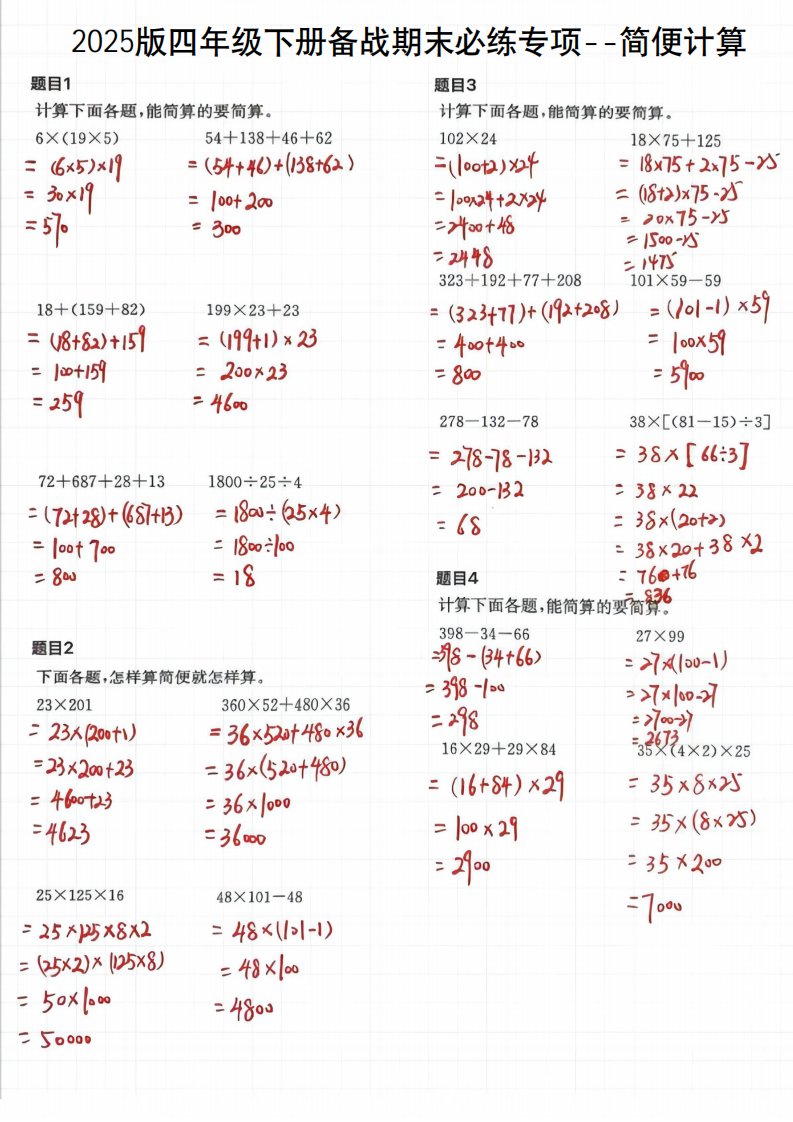 2025版四年级下册备战期末必练专项--简便计算
题目1
计算下面各题,能简算的要简算。
6×(19×5)
= (6×5)×19
= 30×19
= 570
54+138+46+62
= (54+46)+(138+62)
= 100+200
= 300
18+(159+82)
= (18+82)+159
= 100+159
= 259
199×23+23
= (199+1)×23
= 200×23
= 4600
72+687+28+13
= (72+28)+(687+13)
= 100+700
= 800
1800÷25÷4
= 1800÷(25×4)
= 1800÷100
= 18
题目2
下面各题,怎样算简便就怎样算。
23×201
= 23×(200+1)
= 23×200+23
= 4600+23
= 4623
360×52+480×36
= 36×520+480×36
= 36×(520+480)
= 36×1000
= 36000
25×125×16
= 25×125×8×2
= (25×2)×(125×8)
= 50×1000
= 50000
48×101-48
= 48×(101-1)
= 48×100
= 4800
题目3
计算下面各题,能简算的要简算。
102×24
= (100+2)×24
= 100×24+2×24
= 2400+48
= 2448
18×75+125
= 18×75+2×75-25
= (18+2)×75-25
= 20×75-25
= 1500-25
= 1475
323+192+77+208
= (323+77)+(192+208)
= 400+400
= 800
101×59-59
= (101-1)×59
= 100×59
= 5900
278-132-78
= 278-78-132
= 200-132
= 68
38×[(81-15)÷3]
= 38×[66÷3]
= 38×22
= 38×(20+2)
= 38×20+38×2
= 760+76
= 836
题目4
计算下面各题,能简算的要简算。
398-34-66
=398-(34+66)
= 398-100
= 298
27×99
= 27×(100-1)
= 27×100-27
= 2700-27
= 2673
16×29+29×84
= (16+84)×29
= 100×29
= 2900
35×(4×2)×25
= 35×8×25
= 35×(8×25)
= 35×200
= 7000